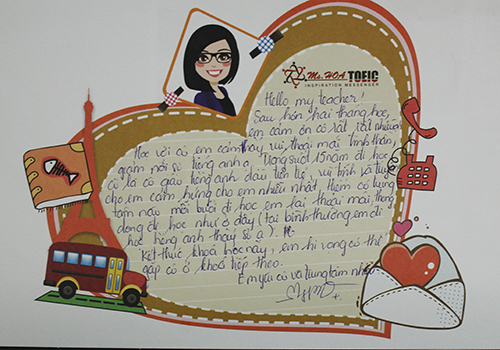 Ms. HOA TOEIC
INSPIRATION MESSENGER
Hello my teacher!
Sau hơn hai tháng học,
em cảm ơn cô rất rất nhiều
Học với cô em cảm thấy vui, thoải mái tinh thần,
giảm nỗi sợ tiếng anh ạ. Trong suốt 15 năm đi học
cô là cô giáo tiếng anh đầu tiên trẻ, vui tính và
cho em cảm hứng cho em nhiều nhất. Hiếm có trung
tâm nào mỗi buổi đi học em lại thoải mái, thong
dong đi học như ở đây (tại bình thường em đi
học tiếng anh thấy sợ ạ).
Kết thúc khoá học này, em hi vọng có thể
gặp cô ở khoá tiếp theo.
Em yêu cô và trung tâm nhiều